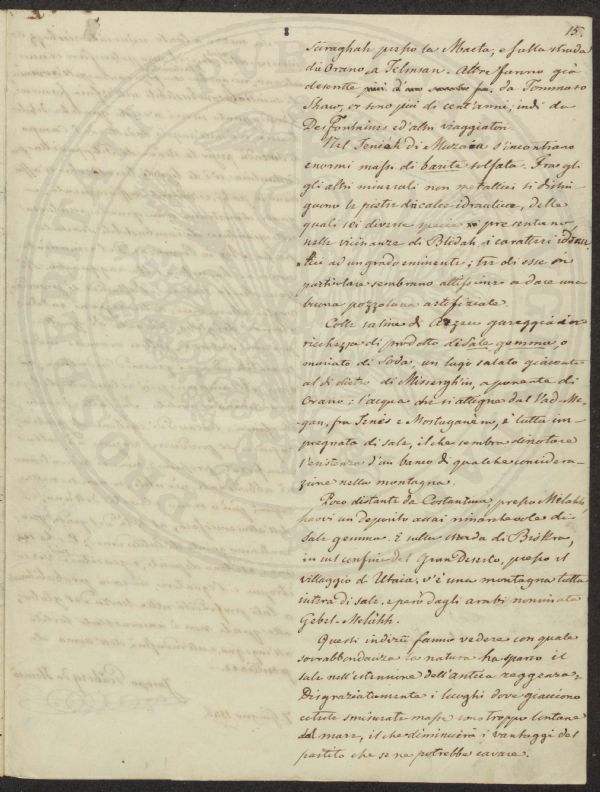 15.
Sciraghah presso la Macta, e sulla strada
da Orano a Telmsan. Altre furono già
descritte da Tommaso
Shaw, or sono più di cent'anni, indi da
Des Fontaines ed altri viaggiatori.
Nel Teniah di Muzaia s'incontrano
enormi massi di barite solfata. Fra gli
gli altri minerali non metallici si distin-
guono le pietre da calce idraulica, delle
quali sei diverse specie presentano,
nelle vicinanze di Blidah, i caratteri iden-
tici ad un grado eminente; tre di esse in
particolare sembrano attissime a dare una
buona pozzolana artifiziale.
Colle saline di Arzeu gareggia in
ricchezza di prodotto di sale gemma, o
muriato di Soda un lago salato giacente
al di dietro di Misserghin, a ponente di
Orano: l'acqua che si attigne dal Vad-Me-
gan, fra Tenès e Mostaganèm, è tutta im-
pregnata di sale, il che sembra dinotare
l'esistenza d'un banco di qualche considera-
zione nella montagna.
Poco distante da Costantina presso Melahh,
havvi un deposito assai rimarchevole di
sale gemma. E sulla strada di Biskra,
in sul confine del Gran Deserto, presso il
villaggio di Utaia, v'è una montagna tutta
intera di sale, e però dagli arabi nominata
Gebel-Melahh.
Questi indizii fanno vedere con quale
sovrabbondanza la natura ha sparso il
sale nell'estensione dell'antica reggenza.
Disgraziatamente i luoghi dove giacciono
coteste smisurate masse sono troppo lontane
dal mare, il che diminuirà i vantaggi del
partito che se ne potrebbe cavare.